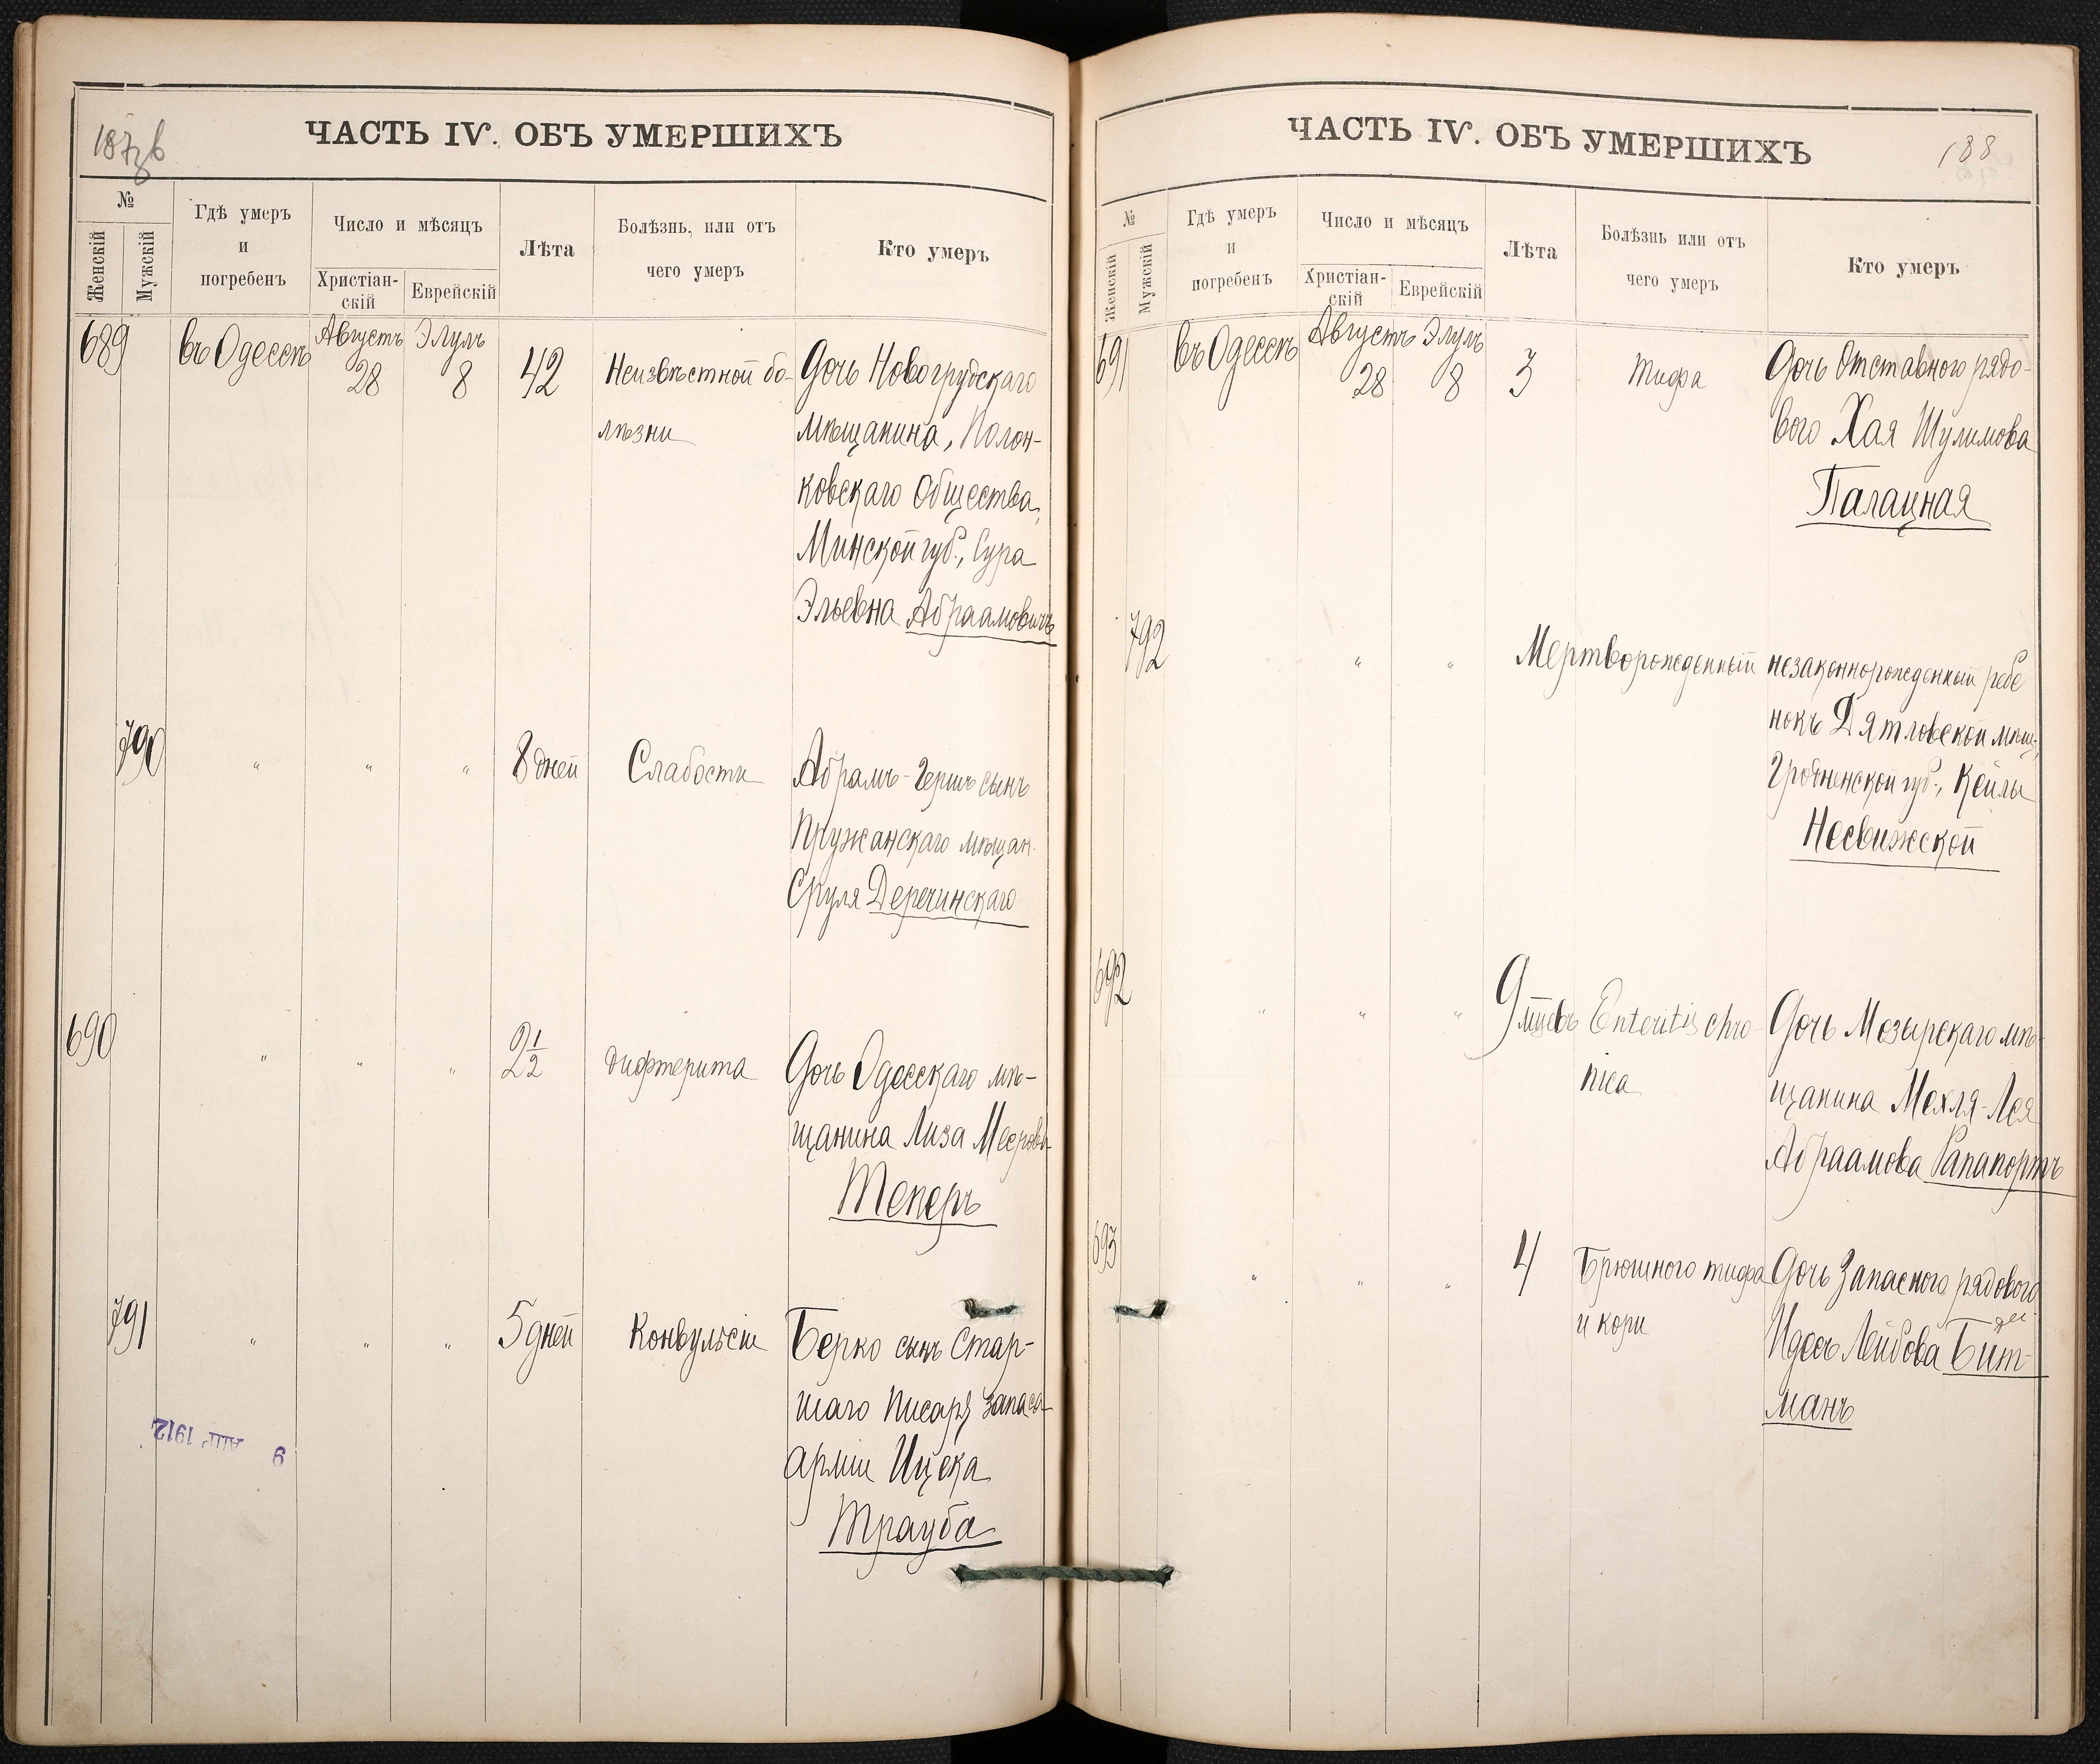 187 об
ЧАСТЬ IV. ОБЪ УМЕРШИХЪ
№
Женскій
Мужскій
Гдѣ умеръ
и
погребенъ
Число и мѣсяцъ
Христіан-
скій
Еврейскій
Лѣта
Болѣзнь, или отъ
чего умеръ
Кто умеръ
689
въ Одессѣ
Августъ
28
Элулъ
8
42
Неизвѣстной бо-
лѣзни
Дочь Новогрудскаго
мѣщанина, Полон-
ковскаго Общества,
Минской губ., Сура
Эльевна Абраамовичъ
790
"
"
"
8 дней
Слабости
Абрамъ-Гершъ сынъ
Пружанскаго мѣщан.
Сруля Деречинскаго
690
"
"
"
2 1/2
дифтерита
Дочь Одесскаго мѣ-
щанина Лиза Меерова
Текеръ
791
"
"
"
5 дней
Конвульсіи
Берко сынъ Стар-
шаго писаря запаса
арміи Ицека
Трауба
9 АПР 1912
ЧАСТЬ IV. ОБЪ УМЕРШИХЪ
188
№
Женскій
Мужскій
Гдѣ умеръ
и
погребенъ
Число и мѣсяцъ
Христіан-
скій
Еврейскій
Лѣта
Болѣзнь или отъ
чего умеръ
Кто умеръ
691
въ Одессѣ
Августъ
28
Элулъ
8
3
Тифа
Дочь Отставного рядо-
вого Хая Шулимова
Палацная
792
"
"
"
Мертворожденный
незаконнорожденный ребе
нокъ Дятловской мѣщ.,
Гродненской губ., Кейлы
Несвижской
692
"
"
"
9 мцевъ
Enteritis chro-
nica
Дочь Мозырскаго мѣ-
щанина Мехля-Лея
Абраамова Рапапортъ
693
"
"
"
4
Брюшного тифа
и кори
Дочь Запасного рядового
Идесъ Лейбова Бит-
манъ